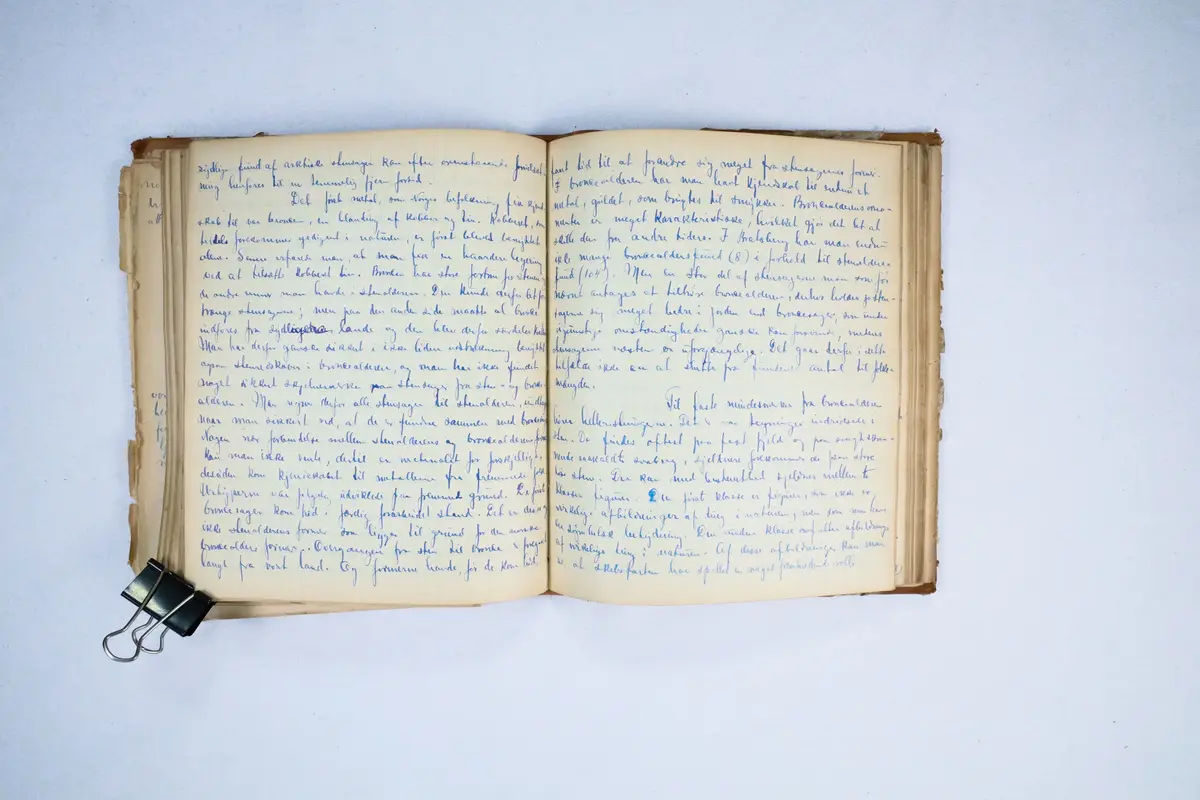 sydlige fund af arktiske stensager kan efter ovenstaaende
ning henføres til en temmelig fjern fortid.
Det første metal, som Norges befolkning fik kjend-
skab til var broncen, en blanding af kobber og tin. Kobberet, som
forekommer gedigent i naturen, er først blevet benyttet
alene. Senere erfarede man, at man fik en haardere legering
ved at tilsætte kobberet tin. Broncen har store fortrin for stenen
de andre man havde i stenalderen. Den kunde derfor let for-
trænge stensagerne; men paa den anden side maatte al bronce
indføres fra sydligere lande og den blev derfor særdeles
Man har derfor ganske sikkert i ikke liden udstrækning benyttet
ogsaa stenredskaber i broncealderen, og man har ikke fundet
noget sikkert skjelnemærke paa stensager fra sten- og bronce-
alderen. Man regner derfor alle stensager til stenalderen,
naar man undtaget ved, at de er fundne sammen med bronce
Nogen nær forbindelse mellem stenalderens og broncealderens
kan man ikke vente, dertil er materialet for forskjelligt,
desuden kom kjendskabet til metallerne fra fremmede folk
Typerne var udviklede paa fremmed grund. De første
broncesager kom hid i færdig forarbeidet stand. Det er derfor
ikke stenalderens former som ligger til grund for den norske
broncealders former. Overgangen fra sten til bronce er foregaaet
langt fra vort land. Og formerne havde, før de kom hid,
havt tid til at forandre sig meget fra stensagernes former.
I broncealderen har man havt kjendskab til endnu et
metal, guldet, som brugtes til smykker. Broncealderens orna-
menter er meget karakteristiske, hvilket gjør det let at
skille den fra andre tider. I Bratsberg har man endnu
ikke mange broncealdersfund (8) i forhold til stenalders-
fund (104). Men en stor del af stensagerne maa som før
nævnt antages at tilhøre broncealderen, desuden holder sten-
sagerne sig meget bedre i jorden end broncesager, som under
ugunstige omstændigheder ganske kan forsvinde, medens
stensagerne næsten er uforgjængelige. Det gaar derfor i dette
tilfælde ikke an at slutte fra fundenes antal til folke-
mængden.
Til faste mindesmærker fra broncealderen
hører helleristningerne. Det er tegninger indridsede i
sten. De findes oftest paa fast fjeld og paa
saakaldte svaberg, sjeldnere forekommer de paa store
løse stene. Der kan med bestemthed skjelnes mellem to
klasser figurer. Den første klasse er figurer, som ikke er
virkelige afbildninger af ting i naturen, men som maa have
en symbolsk betydning. Den anden klasse er afbildninger
af virkelige ting i naturen. Af disse afbildninger kan man
se at skibsfarten har spillet en meget fremtrædende rolle